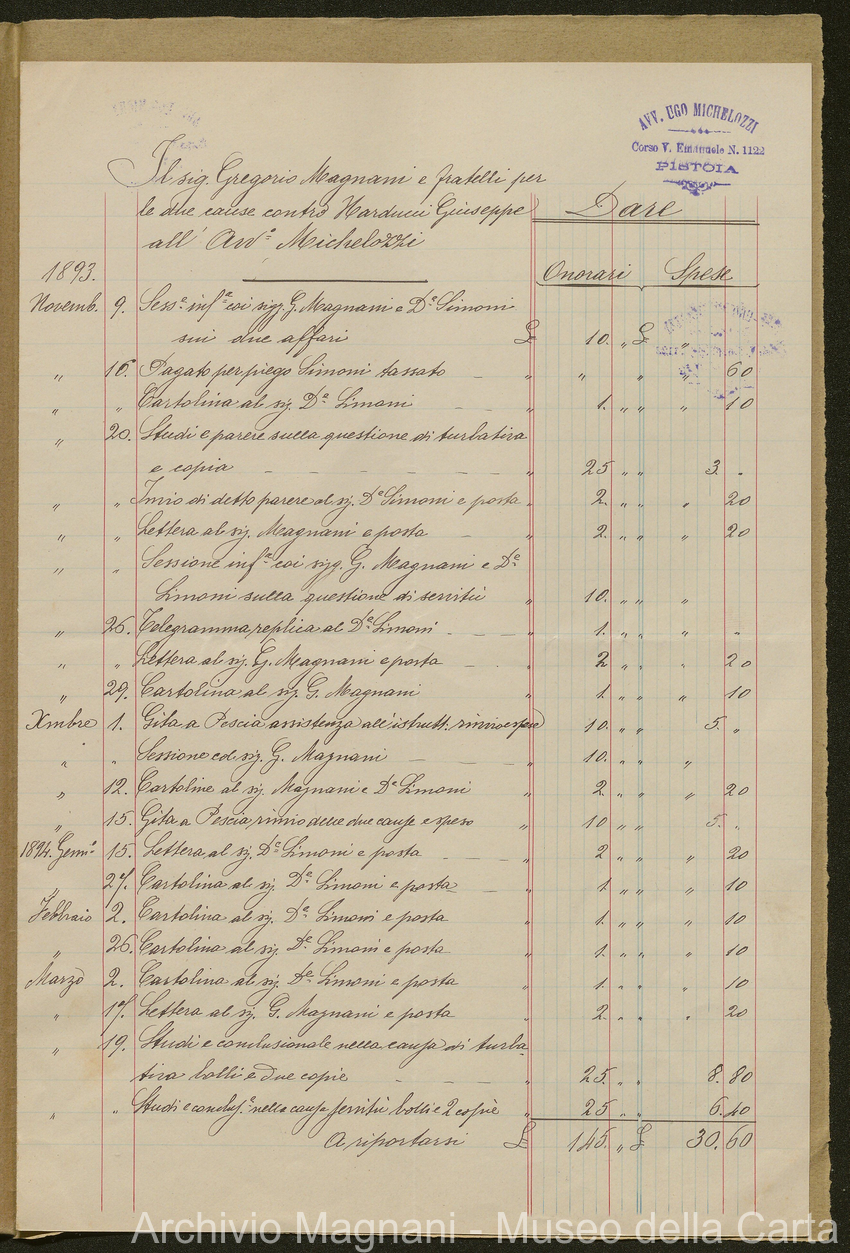 AVV. UGO MICHELOZZI
Corso V. Emanuele N. 1122
PISTOIA
Il sig. Gregorio Magnani e fratelli per
le due cause contro Narducci Giuseppe
all' Avv.o Michelozzi
Dare
1893.
Onorari Spese
Novemb. 9. Sess.e inf.a coi sigg. G. Magnani e D.e Simoni
sui due affari £ 10. „ £ „
„ 16. Pagato per piego Simoni tassato „ „ „ „ 60
„ „ Cartolina al sig. D.e Simoni „ 1. „ „ „ 10
„ 20. Studi e parere sulla questione di turbativa
e copia „ 25 „ „ 3. „
„ „ Invio di detto parere al sig. D.e Simoni e posta „ 2. „ „ „ 20
„ „ Lettera al sig. Magnani e posta „ 2. „ „ „ 20
„ „ Sessione inf.a coi sigg. G. Magnani e D.e
Simoni sulla questione di servitù „ 10. „ „ „
„ 26. Telegramma, replica al D.e Simoni „ 1. „ „ „ „
„ „ Lettera al sig. G. Magnani e posta „ 2 „ „ „ 20
„ 29. Cartolina al sig. G. Magnani „ 1. „ „ „ 10
Xmbre 1. Gita a Pescia assistenza all'istrutt. rinvio e spese 10. „ „ 5. „
„ „ Sessione col sig. G. Magnani „ 10. „ „ „
„ 12. Cartoline al sig. Magnani e D.e Simoni „ 2. „ „ „ 20
„ 15. Gita a Pescia, rinvio delle due cause e spese „ 10 „ „ 5. „
1894. Genn.o 15. Lettera al sig. D.e Simoni e posta „ 2 „ „ „ 20
„ 27. Cartolina al sig. D.e Simoni e posta „ 1. „ „ „ 10
Febbraio 2. Cartolina al sig. D.e Simoni e posta „ 1. „ „ „ 10
„ 26. Cartolina al sig. D.e Simoni e posta „ 1. „ „ „ 10
Marzo 2. Cartolina al sig. D.e Simoni e posta „ 1. „ „ „ 10
„ 17. Lettera al sig. G. Magnani e posta „ 2. „ „ „ 20
„ 19. Studi e conclusionale nella causa di turba-
tiva bolli e due copie „ 25. „ „ 8. 80
„ „ Studi e conclus.e nella causa servitù bolli e 2 copie „ 25 „ „ 6. 40
A riportarsi £ 145. „ £ 30. 60
Archivio Magnani - Museo della Carta